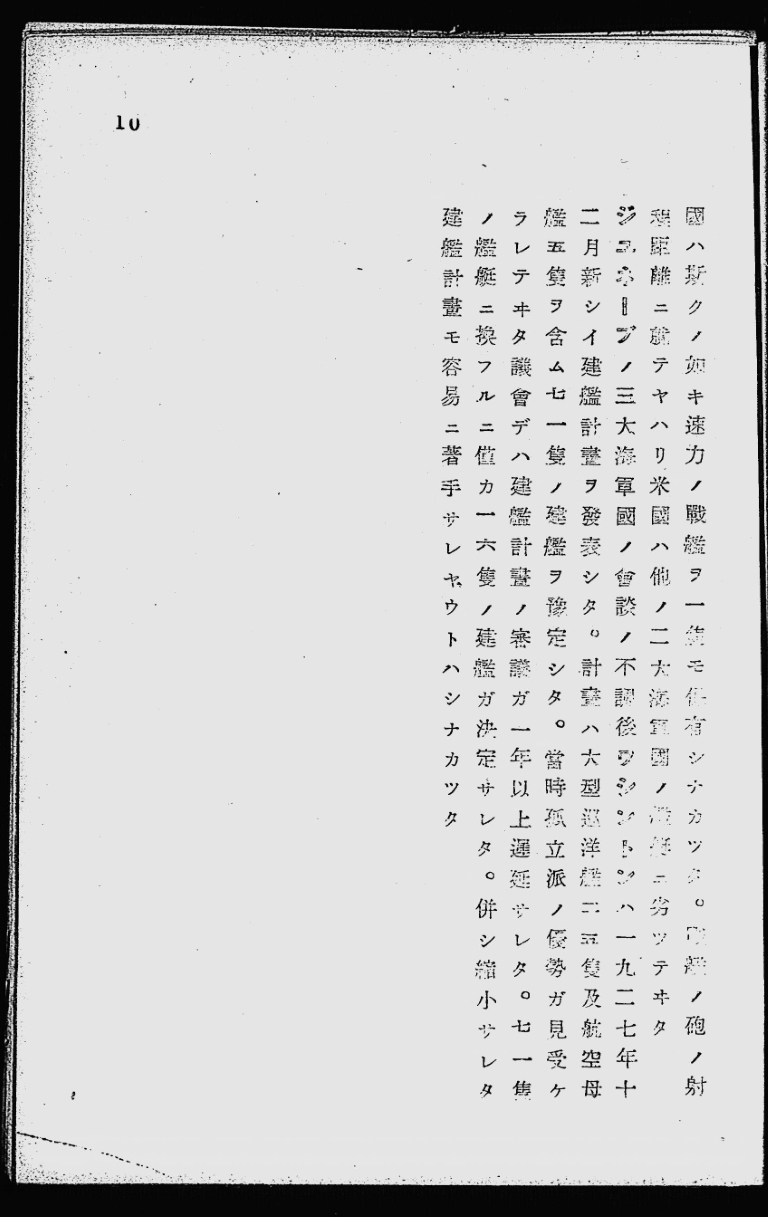 10
國ハ斯クノ如キ速力ノ戰艦ヲ一隻モ保有シナカツタ。艦ノ砲ノ射
程距離ニ就テヤハリ米國ハ他ノ二大海軍國ノ艦艇ニ劣ツテヰタ
ジユネーブノ三大海軍國ノ會談ノ不調後ワシントンハ一九二七年十
二月新シイ建艦計畫ヲ發表シタ。計畫ハ大型巡洋艦二五隻及航空母
艦五隻ヲ含ム七一隻ノ建艦ヲ豫定シタ。當時孤立派ノ優勢ガ見受ケ
ラレテヰタ議會デハ建艦計畫ノ審議ガ一年以上遲延サレタ。七一隻
ノ艦艇ニ換フルニ僅カ一六隻ノ建艦ガ決定サレタ。併シ縮小サレタ
建艦計畫モ容易ニ著手サレヤウトハシナカツタ